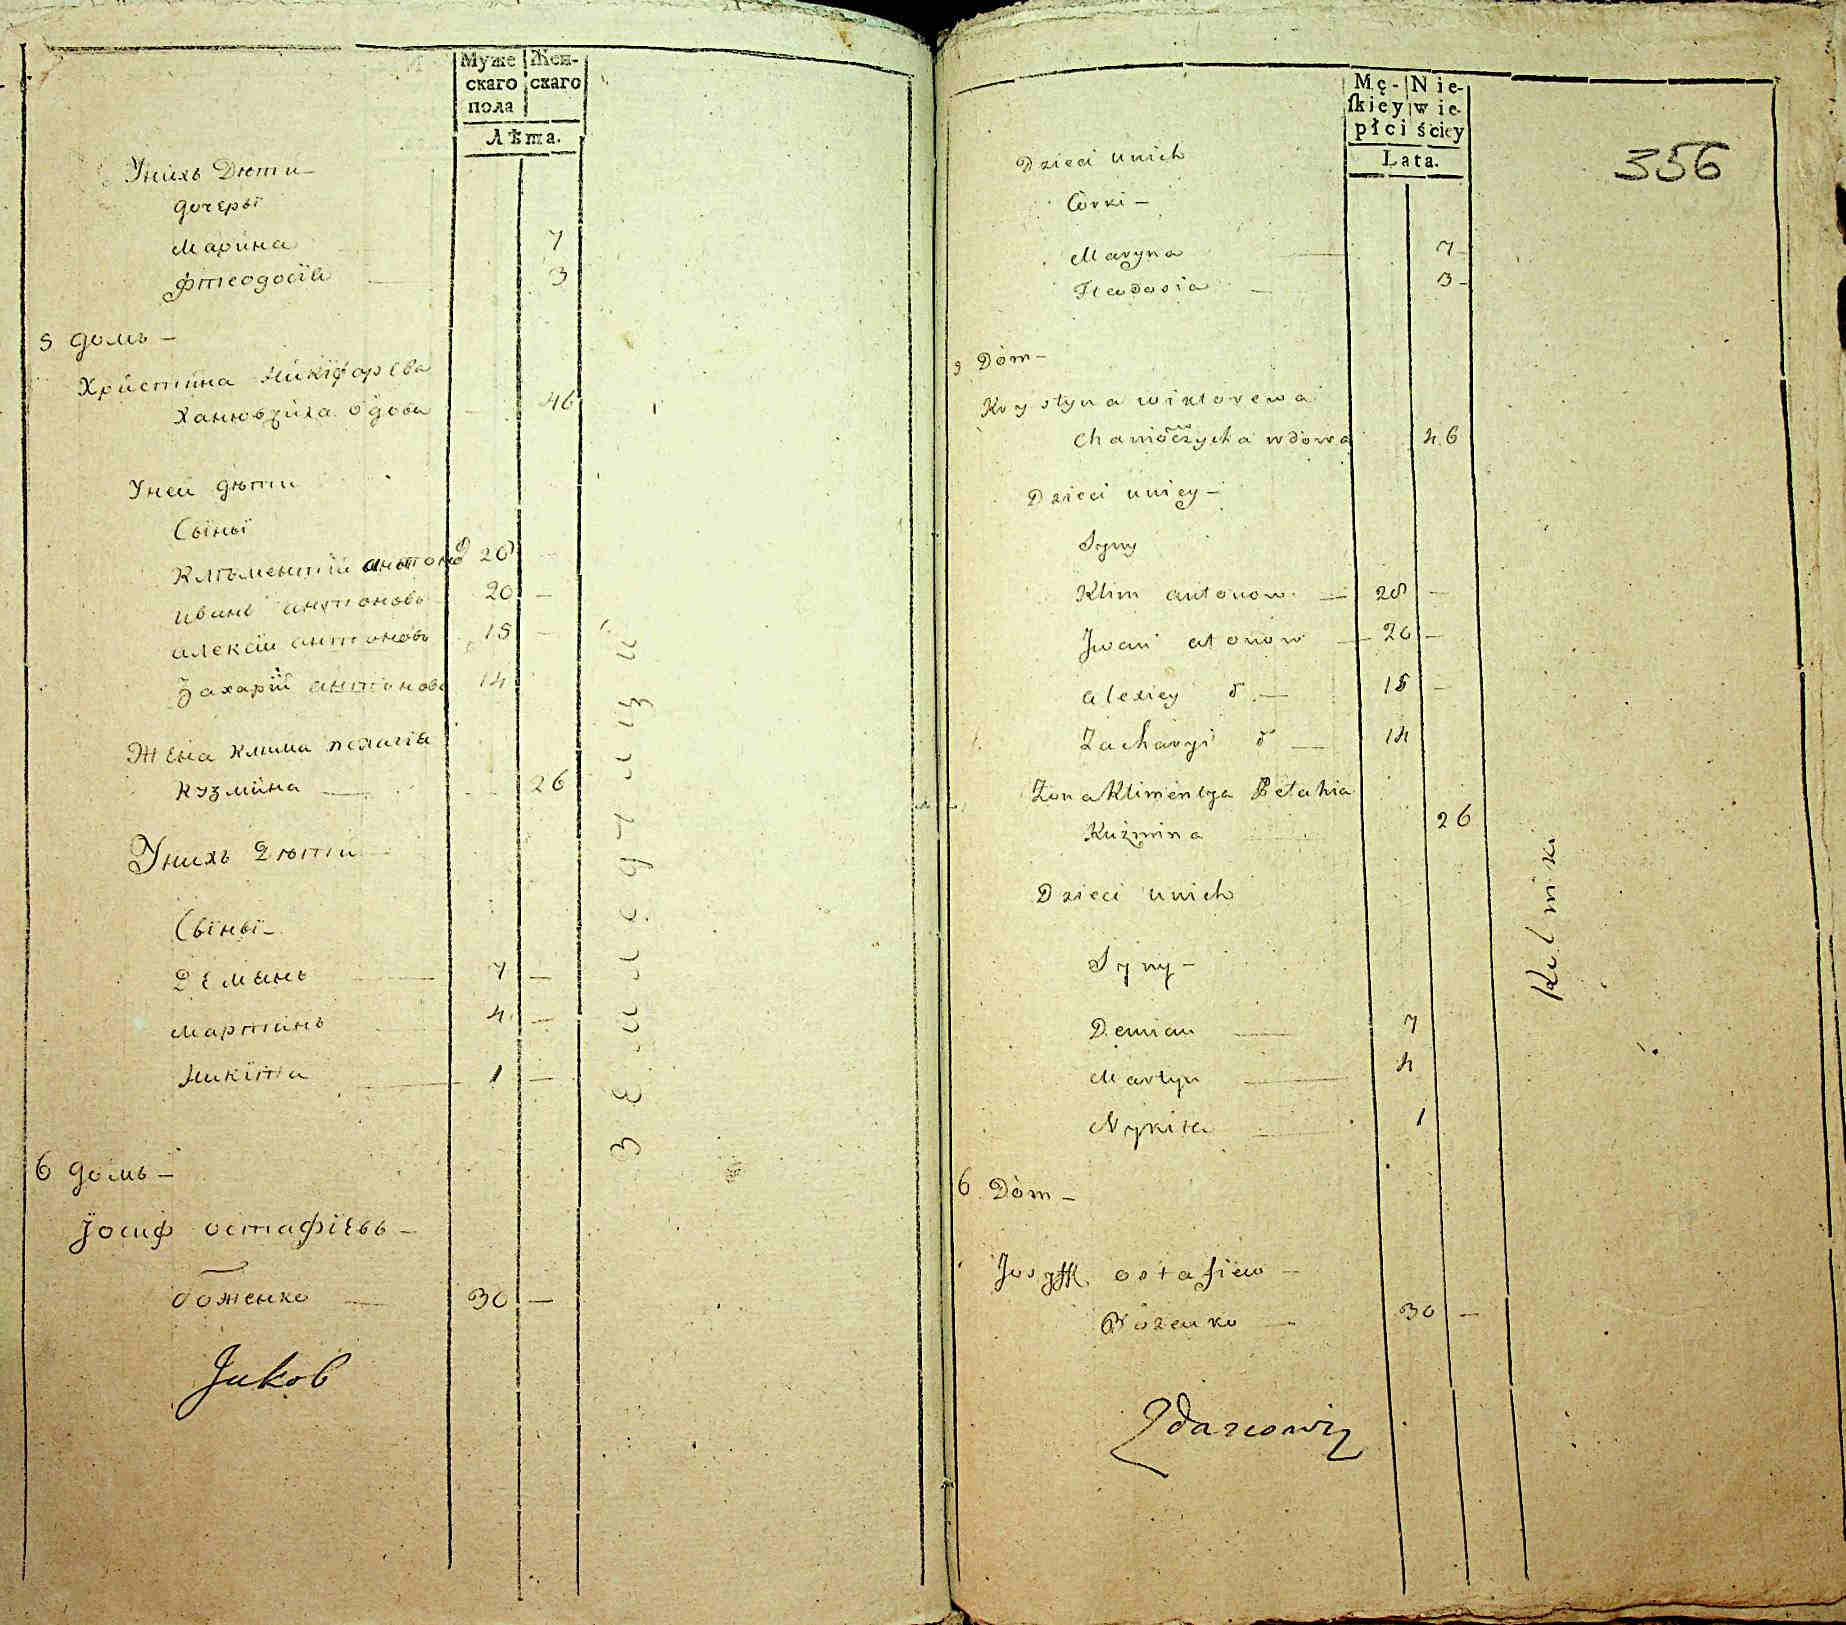 Муже
скаго
пола
Жен-
скаго
Лѣта.
Унихъ Дѣти
дочеры
Марина 7
Фтеодосїя 3
5 домъ
Христина Никїфорева
вдова 46
Уней дѣти
Сыны
Климентїй антоновъ 28
иванъ антоновъ 20
алексїй антоновъ 18
Захарїй антоновъ 14
Жена клима пелагїя
кузмина 26
Унихъ Дѣти
Сыны
Демянъ 7
Мартинъ 4
Никїта 1
6 домъ
Іосиф остафїевъ
боженко 30
Jakob
Mę-
skiey
płci
Nie-
wie-
ściey
Lata.
356
Dzieci unich
Córki
Maryna 7
Fteodosia 3
Dóm
Krystyna wiktorewa
wdowa 46
Dzieci uniey
Syny
Klim antonow 28
Jwan atonow 20
alexiey d 18
Zacharyi d 14
Żona Klimentya Pelahia
Kuźmina 26
Dzieci unich
Syny
Demian 7
Martyn 4
Nykita 1
6 Dóm
Jusyff ostafiew
Bożenko 30